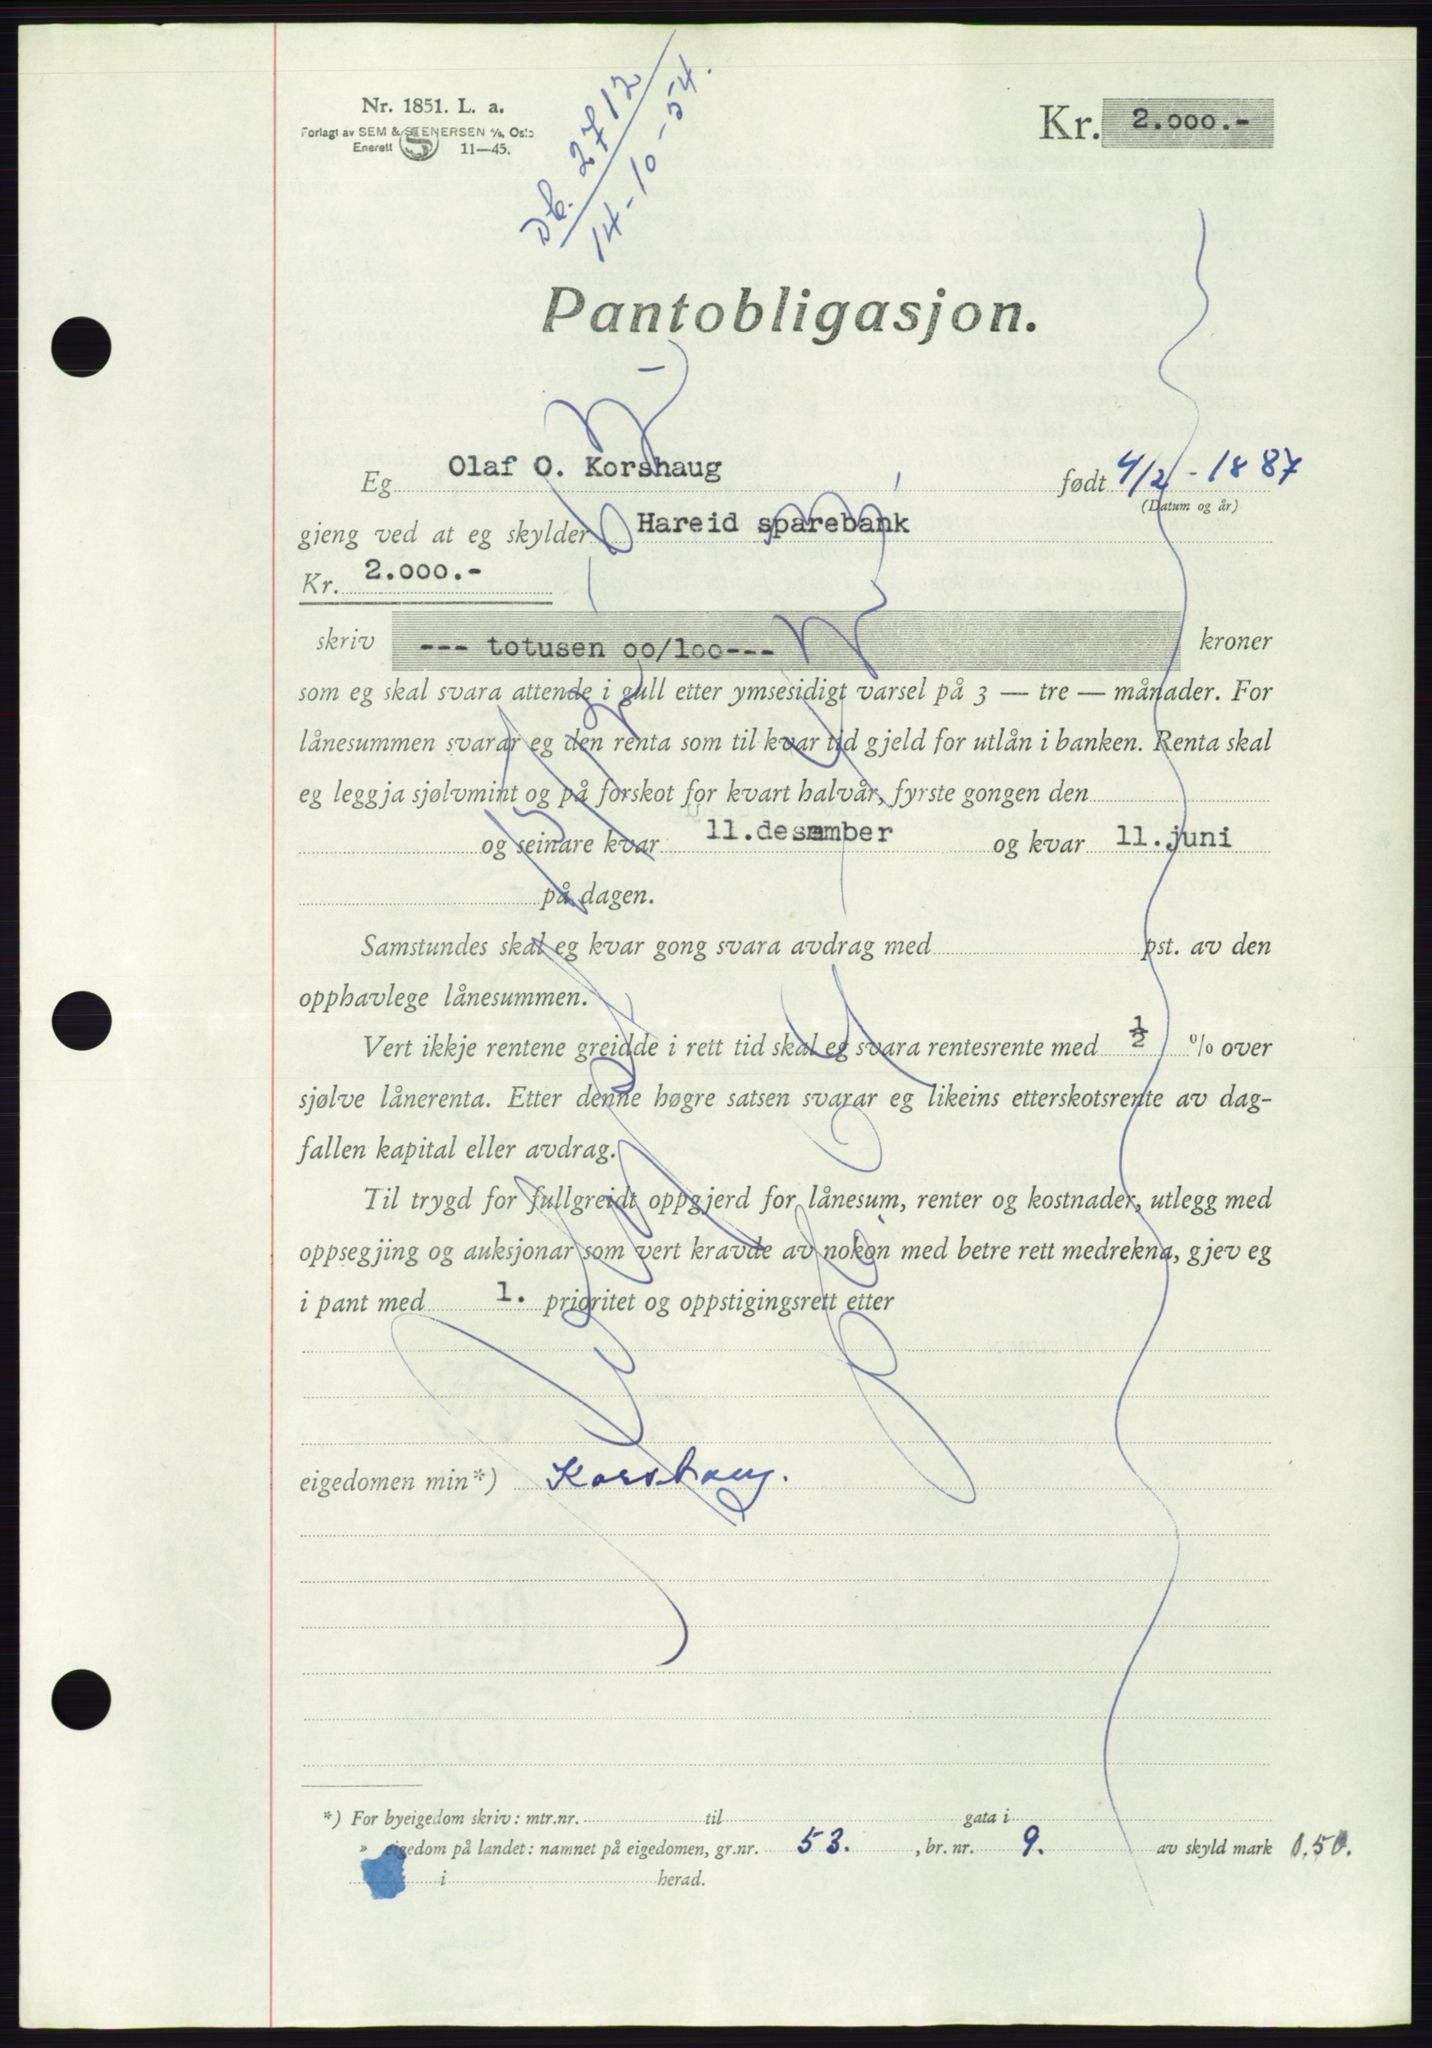 Nr. 1851. L. a.
Forlagt av SEM & STENERSEN A/S, Oslo
Enerett 11—45.
Db. 2712
14-10-54.
Kr. 2.000.-
Pantobligasjon.
Eg Olaf O. Korshaug født 4/2-1887
(Datum og år)
gjeng ved at eg skylder Hareid sparebank
Kr. 2.000.-
skriv --- totusen oo/loo--- kroner
som eg skal svara attende i gull etter ymsesidigt varsel på 3 — tre — månader. For
lånesummen svarar eg den renta som til kvar tid gjeld for utlån i banken. Renta skal
eg leggja sjølvmint og på forskot for kvart halvår, fyrste gongen den
og seinare kvar 11.desember og kvar 11.juni
på dagen.
Samstundes skal eg kvar gong svara avdrag med pst. av den
opphavlege lånesummen.
Vert ikkje rentene greidde i rett tid skal eg svara rentesrente med 1/2 % over
sjølve lånerenta. Etter denne høgre satsen svarar eg likeins etterskotsrente av dag-
fallen kapital eller avdrag.
Til trygd for fullgreidt oppgjerd for lånesum, renter og kostnader, utlegg med
oppsegjing og auksjonar som vert kravde av nokon med betre rett medrekna, gjev eg
i pant med 1. prioritet og oppstigingsrett etter
eigedomen min*) Korshaug.
*) For byeigedom skriv: mtr.nr. til gata i
» eigedom på landet: namnet på eigedomen, gr.nr. 53. , br. nr. 9. av skyld mark 0.50.
i herad.